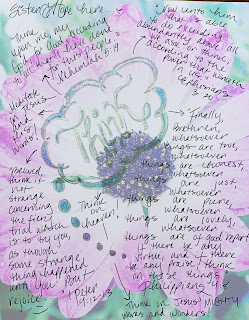 Sister Hope here~
Think upon me, my
God, for good, according
to all that I have done
for this people.
Nehemiah 5:19
Now unto Him
that is able
to do exceeding
abundantly above all
we ask or think,
according to the
power that worketh
in us
Ephesians
3:20
Think
Meditate
on Jesus
and His
Words
Finally,
brethren, whatsoever
things are true,
whatsoever
things are honest,
whatsoever
things are just,
whatsoever
things are pure,
whatsoever
things are lovely,
whatsoever
things are of good report
if there be any
virtue, and if there
be any praise, think
on these things
Philippians 4:8
Beloved,
think it
not
strange
concerning
the fiery
trial which
is to try you,
as though
some strange
thing happened
unto you: But
rejoice
1 Peter
4:12-13
Think
on
heaven,
Think on Jesus' mighty
ways and wonders!